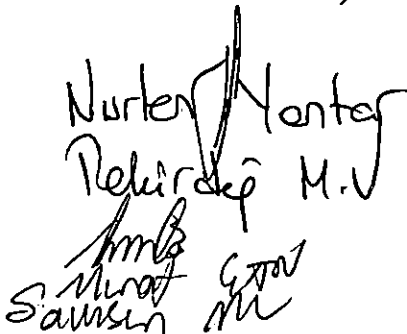 Nurten Yontar
Tekirdağ M.V
Murat Emir
Samsun MV